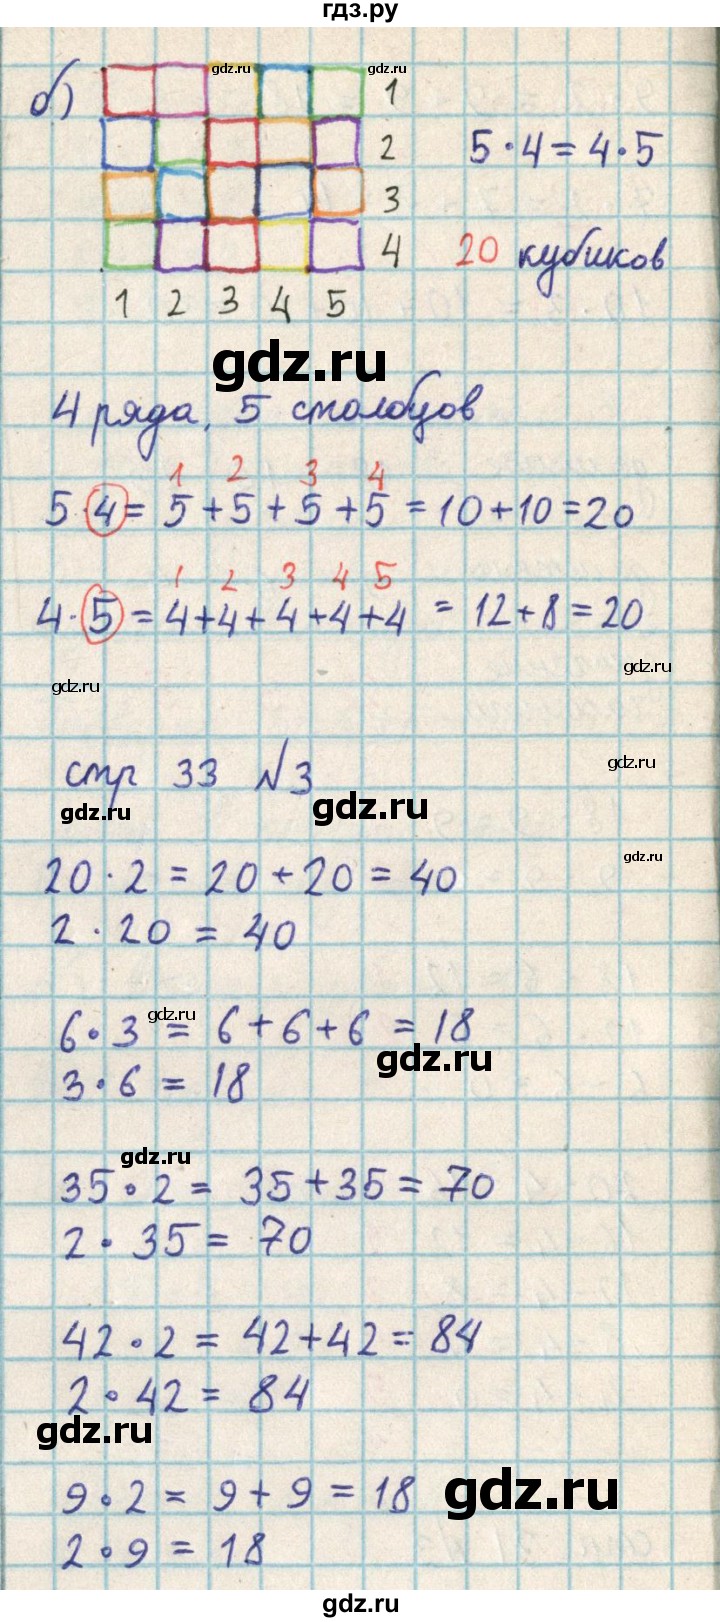 гдз.ру
б)
gdz.ru
gdz.ru
1
2
3
4
1 2 3 4 5
5 · 4 = 4 · 5
20 кубиков
gdz.ru
4 ряда, 5 столбцов
1 2 3 4
5 · 4 = 5 + 5 + 5 + 5 = 10 + 10 = 20
1 2 3 4 5
4 · 5 = 4 + 4 + 4 + 4 + 4 = 12 + 8 = 20
gdz.ru
gdz.ru
стр 33 №3
gdz.ru
gdz.ru
gdz.ru
20 · 2 = 20 + 20 = 40
gdz.ru
2 · 20 = 40
gdz.ru
6 · 3 = 6 + 6 + 6 = 18
gdz.ru
3 · 6 = 18
gdz.ru
35 · 2 = 35 + 35 = 70
2 · 35 = 70
42 · 2 = 42 + 42 = 84
2 · 42 = 84
gdz.ru
9 · 2 = 9 + 9 = 18
gdz.ru
2 · 9 = 18
gdz.ru